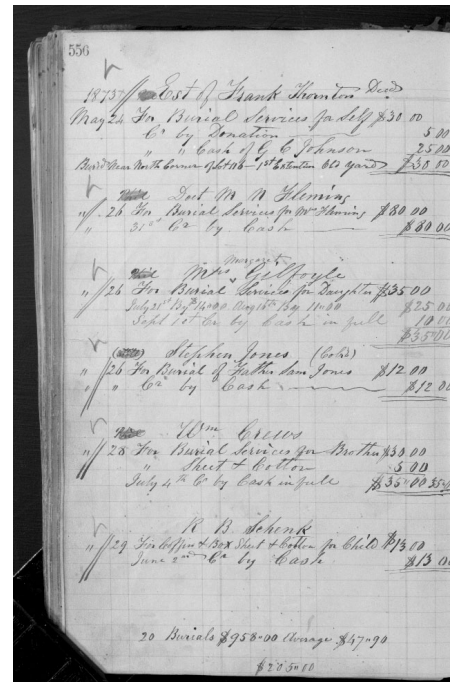 556
1873 Est of Frank Thornton Decd
May 24 For Burial Services for Self $30 00
Cr by Donation 5 00
" " Cash of G C Johnson 25 00
Near North Corner of Lot 1st Extention Old Yard $30 00
Doct M N Fleming
" 26 For Burial Services for Mrs Fleming $80 00
" 31st Cr by Cash $80 00
Margaret
Mrs Gilfoyle
" 26 For Burial Services for Daughter $35 00
July 21st By 14 00 Aug 16th By 11 00 $25 00
Sept 1st Cr by Cash in full 10 00
$35 00
Stephen Jones (Cold)
" 26 For Burial of Father Sam Jones $12 00
" " Cr by Cash $12 00
Wm Crews
" 28 For Burial Services for Brother $30 00
" Sheet & Cotton 5 00
July 4th Cr by Cash in full $35 00 35 00
R B Schenk
" 29 For Coffin & Box Sheet & Cotton for Child $13 00
June 2nd Cr by Cash $13 00
20 Burials $958 00 Average $47 90
$205 00